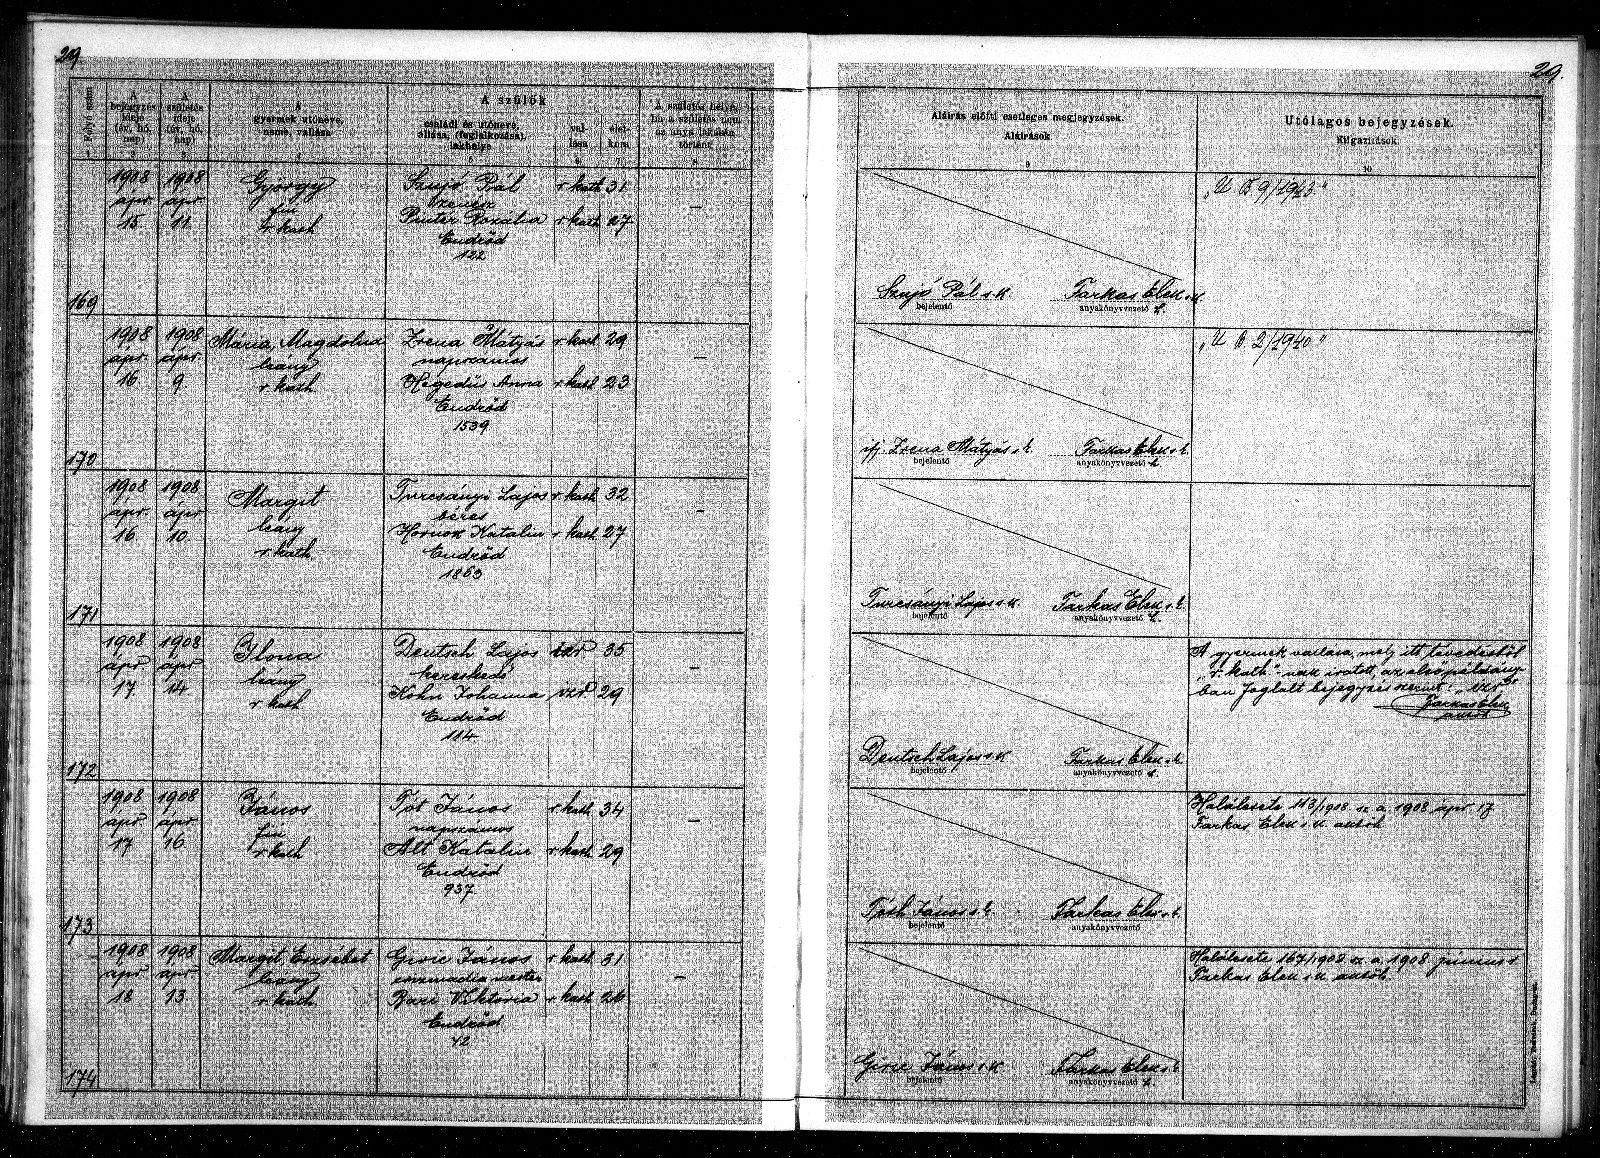 29.
29.
Folyó szám
A bejegyzés ideje (év, hó, nap)
A születés ideje (év, hó, nap)
A gyermek utóneve, neme, vallása
A szülők
családi és utóneve, állása, (foglalkozása), lakhelye
vallása
életkora
A születés helye, ha a születés nem az anya lakásán történt
Aláírás előtti esetleges megjegyzések.
Aláírások
Utólagos bejegyzések.
Kiigazítások
1 2 3 4 5 6 7 8 9 10
1908 1908 György Szujó Pál r. kath 31
ápr ápr fiu zenész
15 11 r kath Pinter Rozália r kath 27
Endrőd
122
169
–
Szujó Pál s. k. Farkas Elek s. k.
bejelentő anyakönyvvezető h.
„U B 9/1943"
1908 1908 Mária, Magdolna Zrena Mátyás r kath 29
ápr. ápr. leány napszámos
16 9. r kath Hegedüs Anna r kath 23
Endrőd
1539
170
–
ifj. Zrena Mátyás s. k. Farkas Elek s. k.
bejelentő anyakönyvvezető h.
„U B. 2/1940"
1908 1908 Margit Turcsányi Lajos r kath 32
ápr. ápr leány béres
16 10. r. kath Hornok Katalin r kath 27
Endrőd
1863
171
–
Turcsányi Lajos s. k. Farkas Elek s. k.
bejelentő anyakönyvvezető h.
1908 1908 Ilona Deutsch Lajos izr 35
ápr ápr leány kereskedő
17 14 r kath Kohn Johanna izr. 29
Endrőd
114
172
–
Deutsch Lajos s. k. Farkas Elek s. k.
bejelentő anyakönyvvezető h.
A gyermek vallása, mely itt tévedésből
„r. kath" nak iratott, az első példány-
ban foglalt bejegyzés szerint: „izr"
Farkas Elek
1908 1908 János Tót János r. kath. 34
ápr. ápr. fiu napszámos
17 16 r kath Alt Katalin r kath 29
Endrőd
937
173
–
Tóth János s. k. Farkas Elek s. k.
bejelentő anyakönyvvezető
Halálesete 113/1908 sz. a. 1908 ápr 17
Farkas Elek s. k.
1908 1908 Margit Erzsébet János r kath 31
ápr ápr leány
18 13. r kath Viktória r kath 26
Endrőd
42
174
–
János s. k. Farkas Elek s. k.
bejelentő anyakönyvvezető h.
Halálesete 167/1908 sz. a. 1908 junius
Farkas Elek s. k.